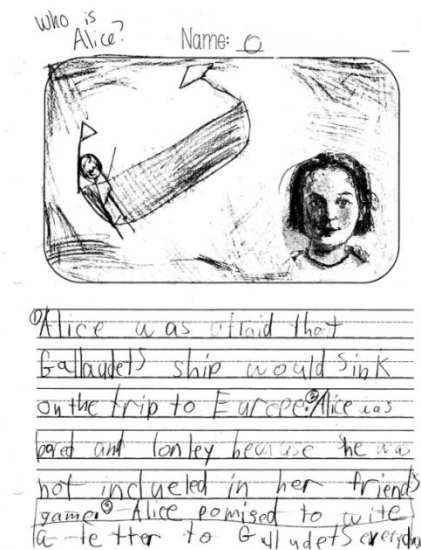 who is
Alice?
Name: O
①Alice was afraid that
Gallaudets ship would sink
on the trip to Europe.②Alice was
bored and lonley because she was
not inclueled in her friends
game.③Alice pomised to write
a letter to Galludets everyday